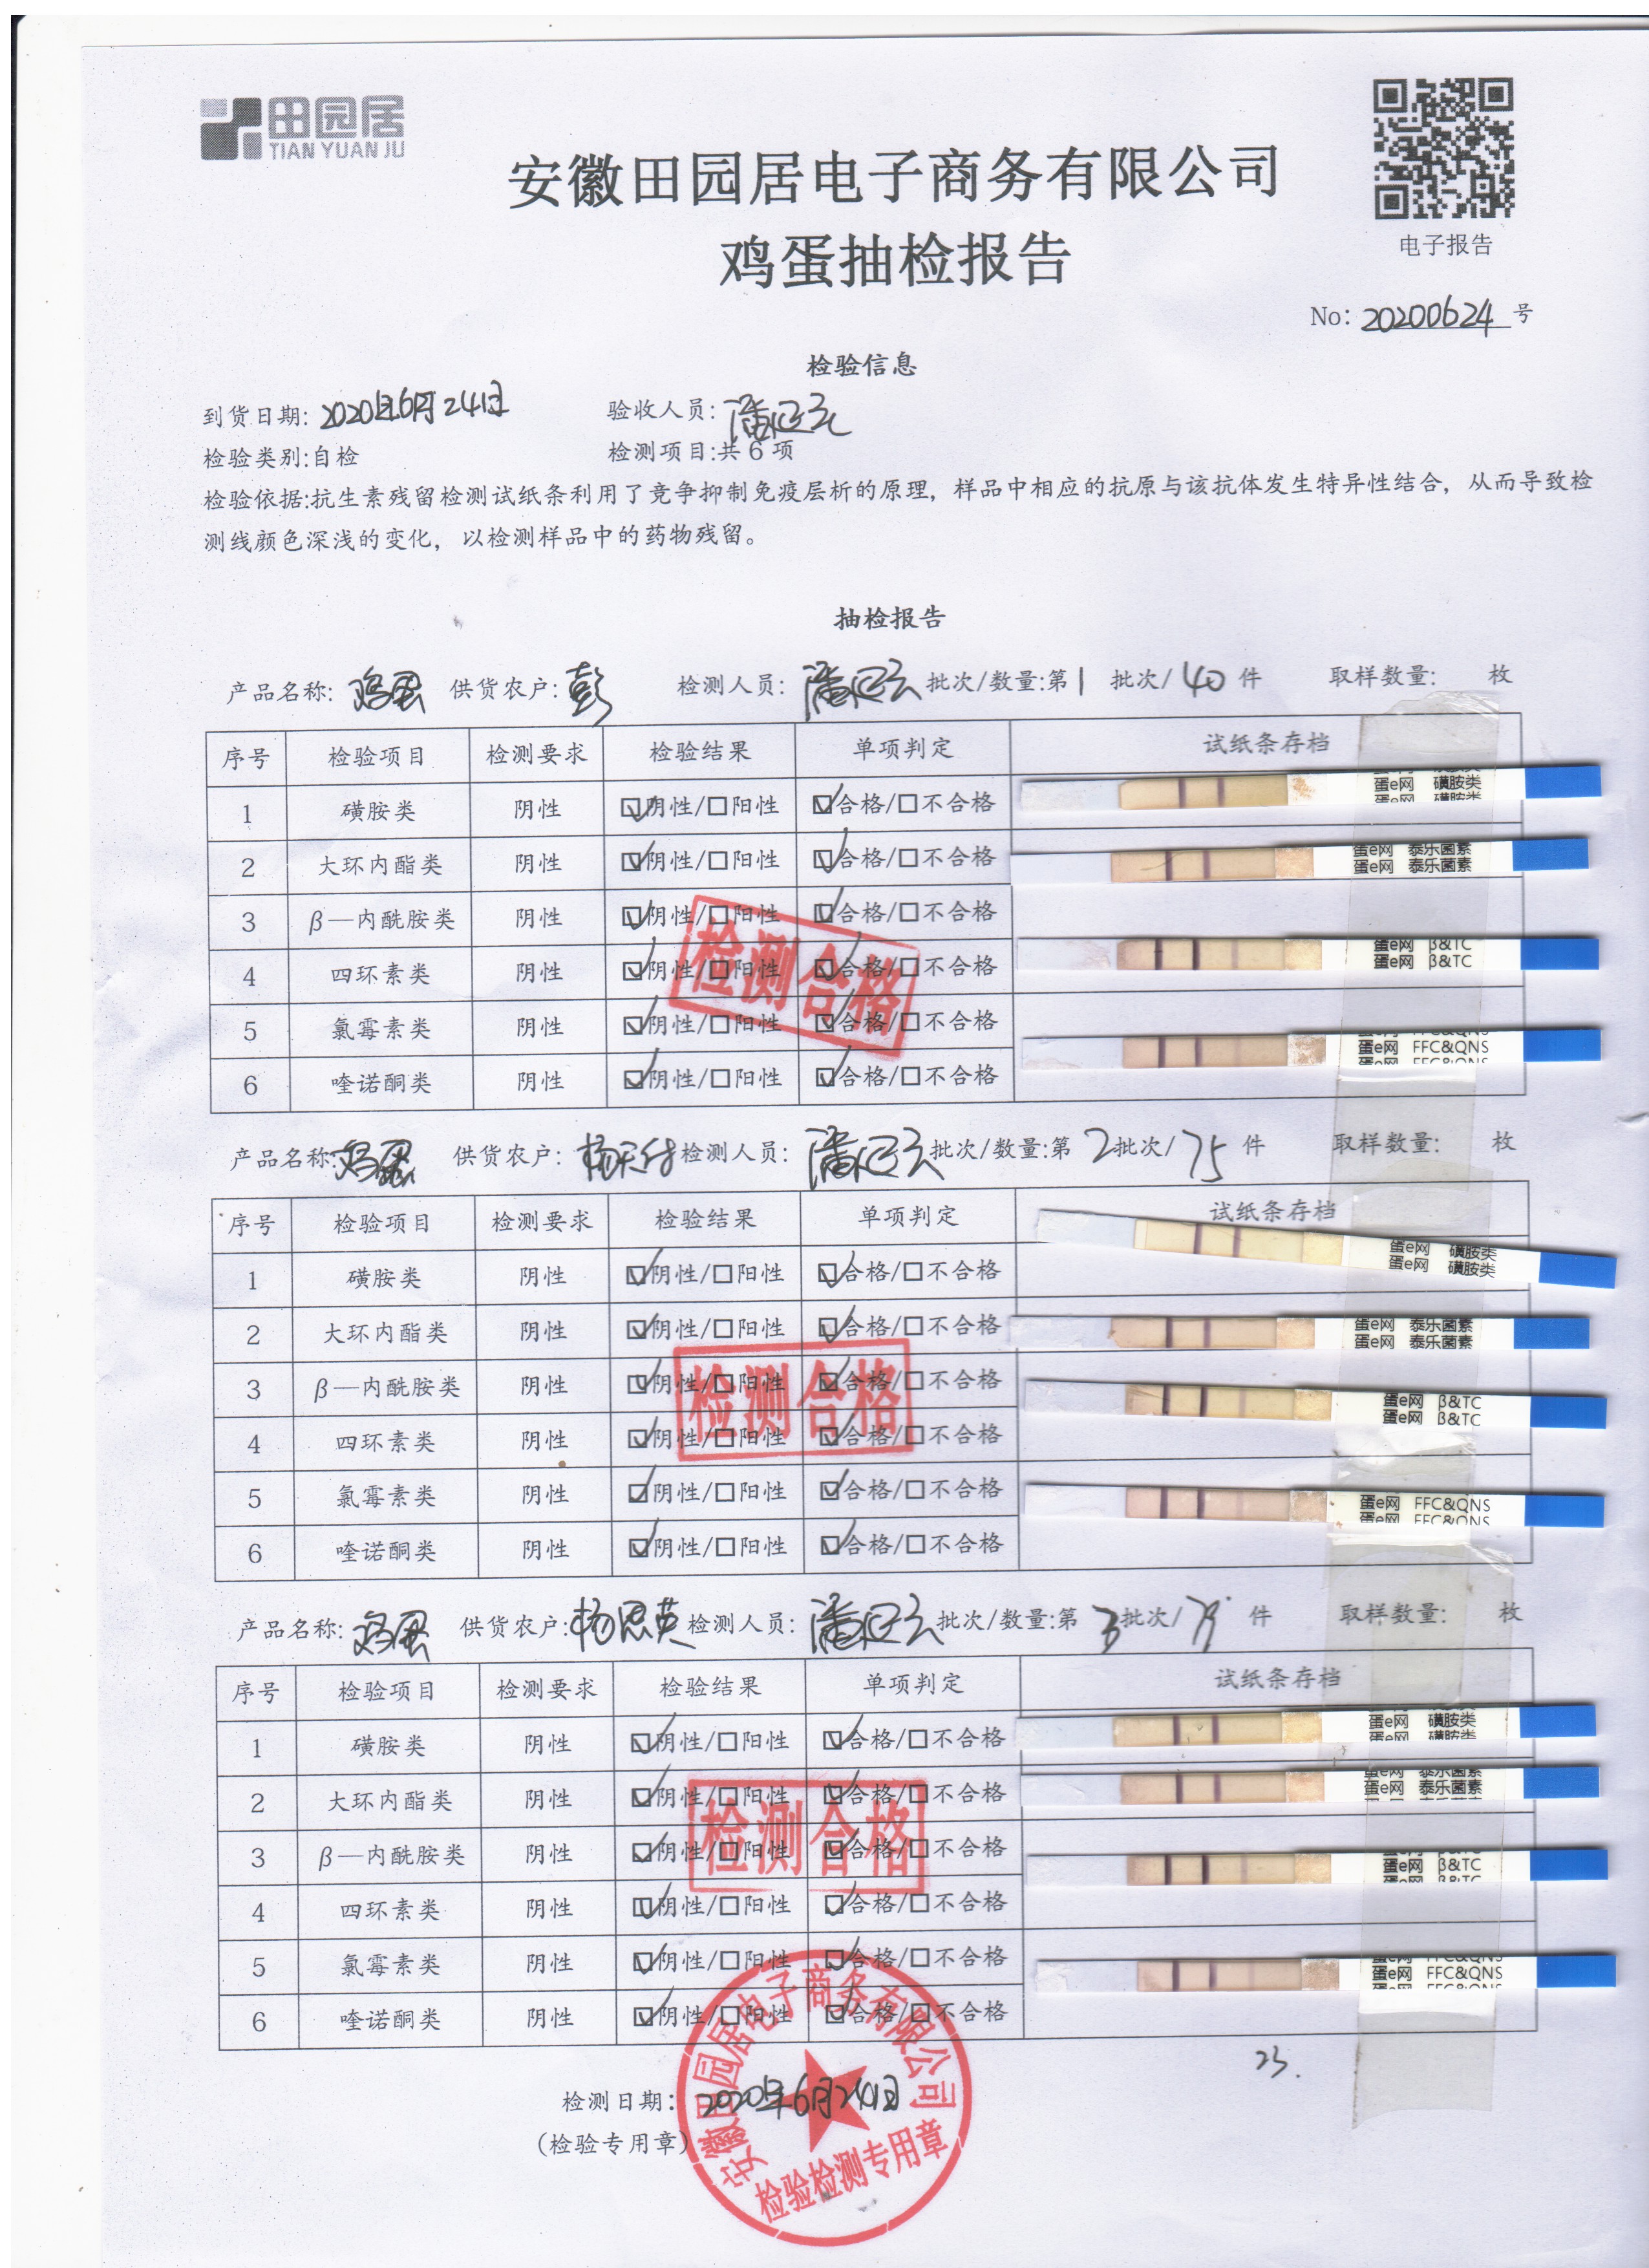 田园居
TIAN YUAN JU
安徽田园居电子商务有限公司
鸡蛋抽检报告
电子报告
No: 20200624 号
检验信息
到货日期: 2020年6月24日 验收人员: 潘
检验类别:自检 检测项目:共6项
检验依据:抗生素残留检测试纸条利用了竞争抑制免疫层析的原理，样品中相应的抗原与该抗体发生特异性结合，从而导致检
测线颜色深浅的变化，以检测样品中的药物残留。
抽检报告
产品名称: 鸡蛋 供货农户: 彭 检测人员: 潘 批次/数量:第1 批次/40 件 取样数量: 枚
序号 检验项目 检测要求 检验结果 单项判定 试纸条存档
1 磺胺类 阴性 ☑阴性/☐阳性 ☑合格/☐不合格 蛋e网 磺胺类
蛋e网 磺胺类
2 大环内酯类 阴性 ☑阴性/☐阳性 ☑合格/☐不合格 蛋e网 泰乐菌素
蛋e网 泰乐菌素
3 β—内酰胺类 阴性 ☑阴性/☐阳性 ☑合格/☐不合格
蛋e网 β&TC
4 四环素类 阴性 ☑阴性/☐阳性 ☑合格/☐不合格 蛋e网 β&TC
检测合格
5 氯霉素类 阴性 ☑阴性/☐阳性 ☑合格/☐不合格
蛋e网 FFC&QNS
蛋e网 FFC&QNS
6 喹诺酮类 阴性 ☑阴性/☐阳性 ☑合格/☐不合格
产品名称: 鸡蛋 供货农户: 杨 检测人员: 潘 批次/数量:第 2批次/75 件 取样数量: 枚
序号 检验项目 检测要求 检验结果 单项判定 试纸条存档
蛋e网 磺胺类
蛋e网 磺胺类
1 磺胺类 阴性 ☑阴性/☐阳性 ☑合格/☐不合格
2 大环内酯类 阴性 ☑阴性/☐阳性 ☑合格/☐不合格 蛋e网 泰乐菌素
蛋e网 泰乐菌素
3 β—内酰胺类 阴性 ☑阴性/☐阳性 ☑合格/☐不合格 蛋e网 β&TC
蛋e网 β&TC
检测合格
4 四环素类 阴性 ☑阴性/☐阳性 ☑合格/☐不合格
5 氯霉素类 阴性 ☑阴性/☐阳性 ☑合格/☐不合格 蛋e网 FFC&QNS
蛋e网 FFC&QNS
6 喹诺酮类 阴性 ☑阴性/☐阳性 ☑合格/☐不合格
产品名称: 鸡蛋 供货农户: 杨思英 检测人员: 潘 批次/数量:第 3批次/ 件 取样数量: 枚
序号 检验项目 检测要求 检验结果 单项判定 试纸条存档
1 磺胺类 阴性 ☑阴性/☐阳性 ☑合格/☐不合格 蛋e网 磺胺类
蛋e网 磺胺类
2 大环内酯类 阴性 ☑阴性/☐阳性 ☑合格/☐不合格 蛋e网 泰乐菌素
蛋e网 泰乐菌素
检测合格
3 β—内酰胺类 阴性 ☑阴性/☐阳性 ☑合格/☐不合格 蛋e网 β&TC
蛋e网 β&TC
4 四环素类 阴性 ☑阴性/☐阳性 ☑合格/☐不合格
5 氯霉素类 阴性 ☑阴性/☐阳性 ☑合格/☐不合格 蛋e网 FFC&QNS
蛋e网 FFC&QNS
6 喹诺酮类 阴性 ☑阴性/☐阳性 ☑合格/☐不合格
23.
检测日期: 2020年6月24日
(检验专用章)
安徽田园居电子商务有限公司
检验检测专用章